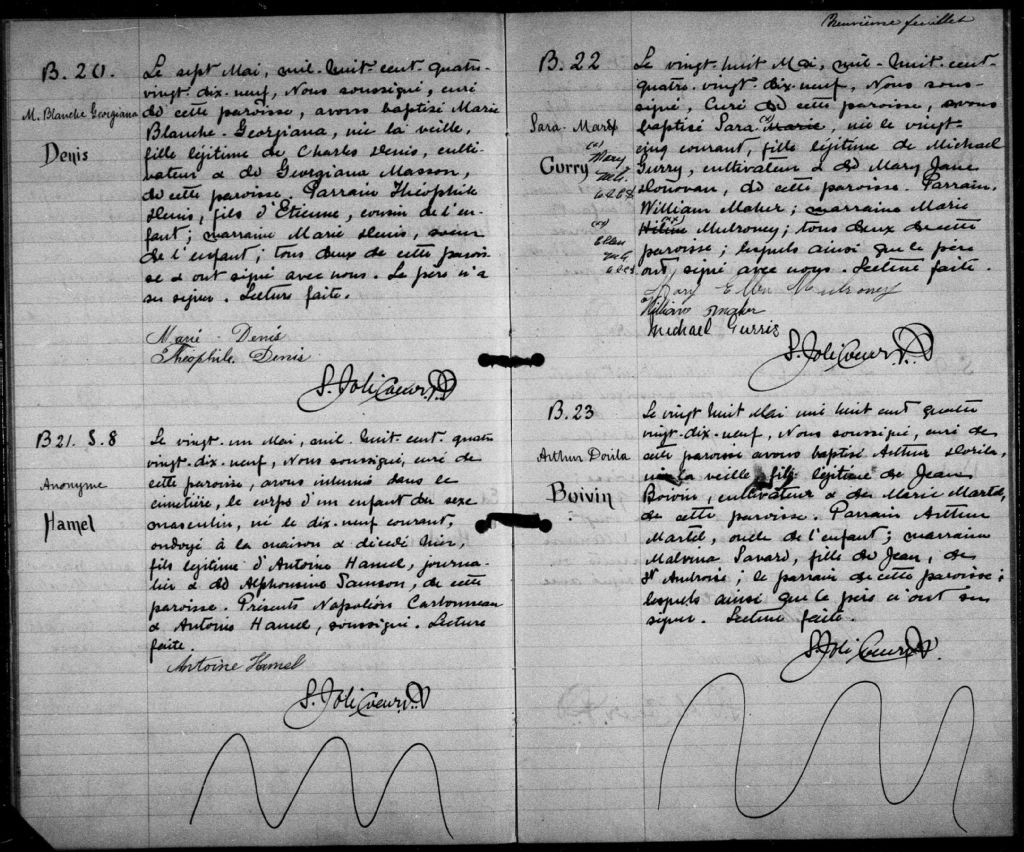 B. 20.
M. Blanche Georgiana
Denis
Le sept Mai, mil-huit-cent-quatre-
vingt-dix-neuf, Nous soussigné, curé
de cette paroisse, avons baptisé Marie
Blanche-Georgiana, née la veille,
fille légitime de Charles Denis, culti-
vateur & de Georgiana Masson,
de cette paroisse. Parrain Théophile
Denis, fils d'Etienne, cousin de l'en-
fant; marraine Marie Denis, soeur
de l'enfant; tous deux de cette parois-
se & ont signé avec nous. Le père n'a
su signer. Lecture faite.
Marie Denis
Théophile Denis
S. Jolicoeur
B21. S.8
Anonyme
Hamel
Le vingt-un Mai, mil-huit-cent-quatre
vingt-dix-neuf, Nous soussigné, curé de
cette paroisse, avons inhumé dans le
cimetière, le corps d'un enfant du sexe
masculin, né le dix-neuf courant,
ondoyé à la maison & décédé hier,
fils légitime d'Antoine Hamel, journa-
lier & de Alphonsine Samson, de cette
paroisse. Présents Napoléon Carbonneau
& Antoine Hamel, soussigné. Lecture
faite.
Antoine Hamel
S. Jolicoeur
feuillet
B. 22
Sara-Mary
Gurry
(x) Mary
(xx) Ellen
Le vingt-huit Mai, mil-huit-cent-
quatre-vingt-dix-neuf, Nous sous-
signé, Curé de cette paroisse, avons
baptisé Sara (x) Marie, née le vingt-
cinq courant, fille légitime de Michael
Gurry, cultivateur & de Mary Jane
Donovan, de cette paroisse. Parrain,
William Maher; marraine Marie
(xx) Mulroney; tous deux de cette
paroisse; lesquels ainsi que le père
ont signé avec nous. Lecture faite.
Mary Ellen Mulroney
William Maher
Michael Gurris
S. Jolicoeur
B. 23
Arthur Dorila
Boivin
Le vingt huit Mai mil huit cent quatre
vingt-dix-neuf, Nous soussigné, curé de
cette paroisse avons baptisé Arthur Dorila,
né la veille fils légitime de Jean
Boivin, cultivateur & de Marie Martel,
de cette paroisse. Parrain Arthur
Martel, oncle de l'enfant; marraine
Malvina Savard, fille de Jean, de
St Ambroise; le parrain de cette paroisse;
lesquels ainsi que le père n'ont su
signer. Lecture faite.
S. Jolicoeur